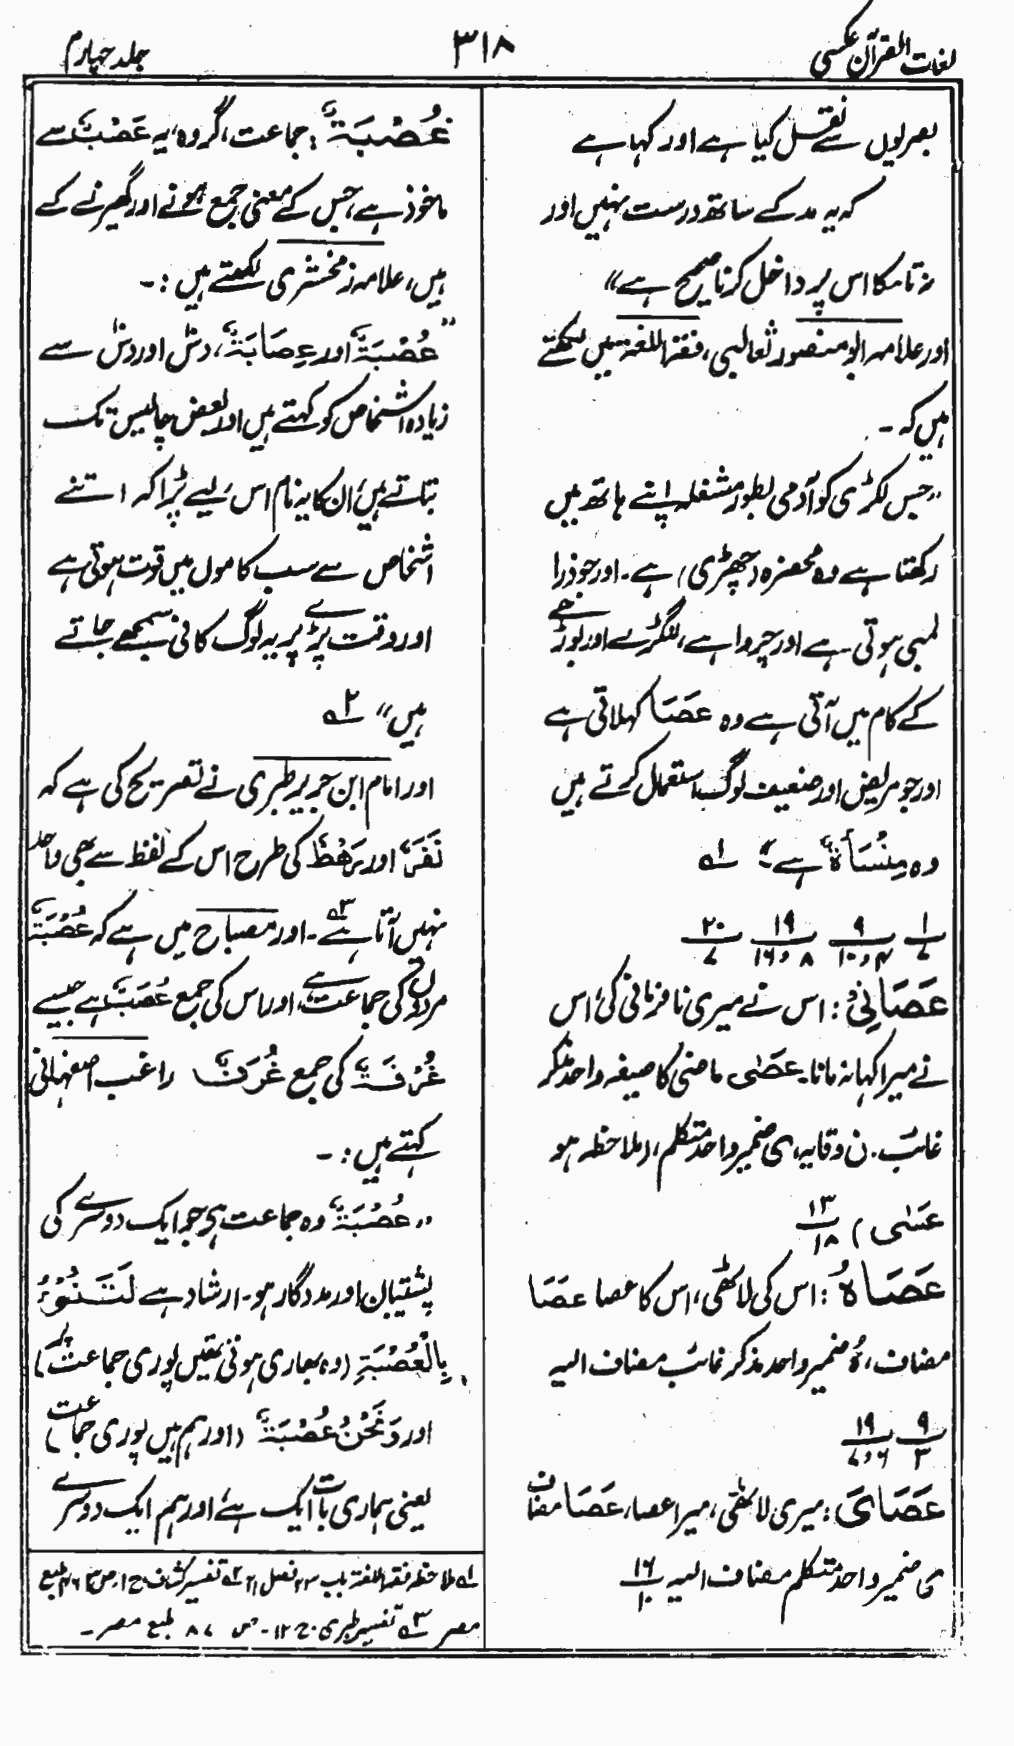 لغات القرآن عکسی
۳۱۸
جلد چہارم
بصریوں سے نقل کیا ہے اور کہا ہے
کہ یہ مد کے ساتھ درست نہیں اور
نہ تا کا اس پر داخل کرنا صحیح ہے"
اور علامہ ابو منصور ثعالبی، فقہ اللغۃ میں لکھتے
ہیں کہ ۔
"جس لکڑی کو آدمی بطور مشغلہ اپنے ہاتھ میں
رکھتا ہے وہ محضرہ (چھڑی) ہے۔ اور جو ذرا
لمبی ہوتی ہے اور چرواہے، لنگڑے اور بوڑھے
کے کام میں آتی ہے وہ عَصَا کہلاتی ہے
اور جو مریض اور ضعیف لوگ استعمال کرتے ہیں
وہ مِنْسَأَۃٌ ہے" ۱؎
۱/۷ ۹/۴و۱۰ ۱۹/۸و۱۶ ۲۰/۷
عَصَانِیْ: اس نے میری نافرمانی کی، اس
نے میرا کہا نہ مانا۔ عَصٰی ماضی کا صیغہ واحد مذکر
غائب۔ ن وقایہ، ی ضمیر واحد متکلم، (ملاحظہ ہو
عَسٰی) ۱۳/۱۸
عَصَاہُ: اس کی لاٹھی، اس کا عصا عَصَا
مضاف، ہُ ضمیر واحد مذکر غائب مضاف الیہ
۹/۳ ۱۹/۶و۷
عَصَایَ: میری لاٹھی، میرا عصا، عَصَا مضاف
ی ضمیر واحد متکلم مضاف الیہ ۱۶/۱۰
عُصْبَۃٌ: جماعت، گروہ، یہ عَصْبٌ سے
ماخوذ ہے، جس کے معنی جمع ہونے اور گھیرنے کے
ہیں، علامہ زمخشری لکھتے ہیں :۔
"عُصْبَۃٌ اور عِصَابَۃٌ، دس اور دس سے
زیادہ اشخاص کو کہتے ہیں اور بعض چالیس تک
بتاتے ہیں، ان کا یہ نام اس لیے پڑا کہ اتنے
اشخاص سے سب کاموں میں قوت ہوتی ہے
اور وقت پڑے پر یہ لوگ کافی سمجھے جاتے
ہیں" ۲؎
اور امام ابن جریر طبری نے تصریح کی ہے کہ
نَفَرٌ اور رَھْطٌ کی طرح اس کے لفظ سے بھی واحد
نہیں آتا ہے ۳؎۔ اور مصباح میں ہے کہ عُصْبَۃٌ
مردوں کی جماعت ہے، اور اس کی جمع عُصَبٌ ہے جیسے
غُرْفَۃٌ کی جمع غُرَفٌ راغب اصفہانی
کہتے ہیں :۔
"عُصْبَۃٌ وہ جماعت ہے جو ایک دوسرے کی
پشتیبان اور مددگار ہو۔ ارشاد ہے لَتَنُوْءُ
بِالْعُصْبَۃِ (وہ بھاری ہوتی تھیں پوری جماعت پر)
اور وَنَحْنُ عُصْبَۃٌ (اور ہم ہیں پوری جماعت)
یعنی ہماری بات ایک ہے، اور ہم ایک دوسرے
۱؎ ملاحظہ فقہ اللغۃ باب ۲۳ فصل ۲۱ ۲؎ تفسیر کشاف ج ۱، ص طبع
مصر ۳؎ تفسیر طبری ج ۱۲۔ ص ۸۷ طبع مصر۔